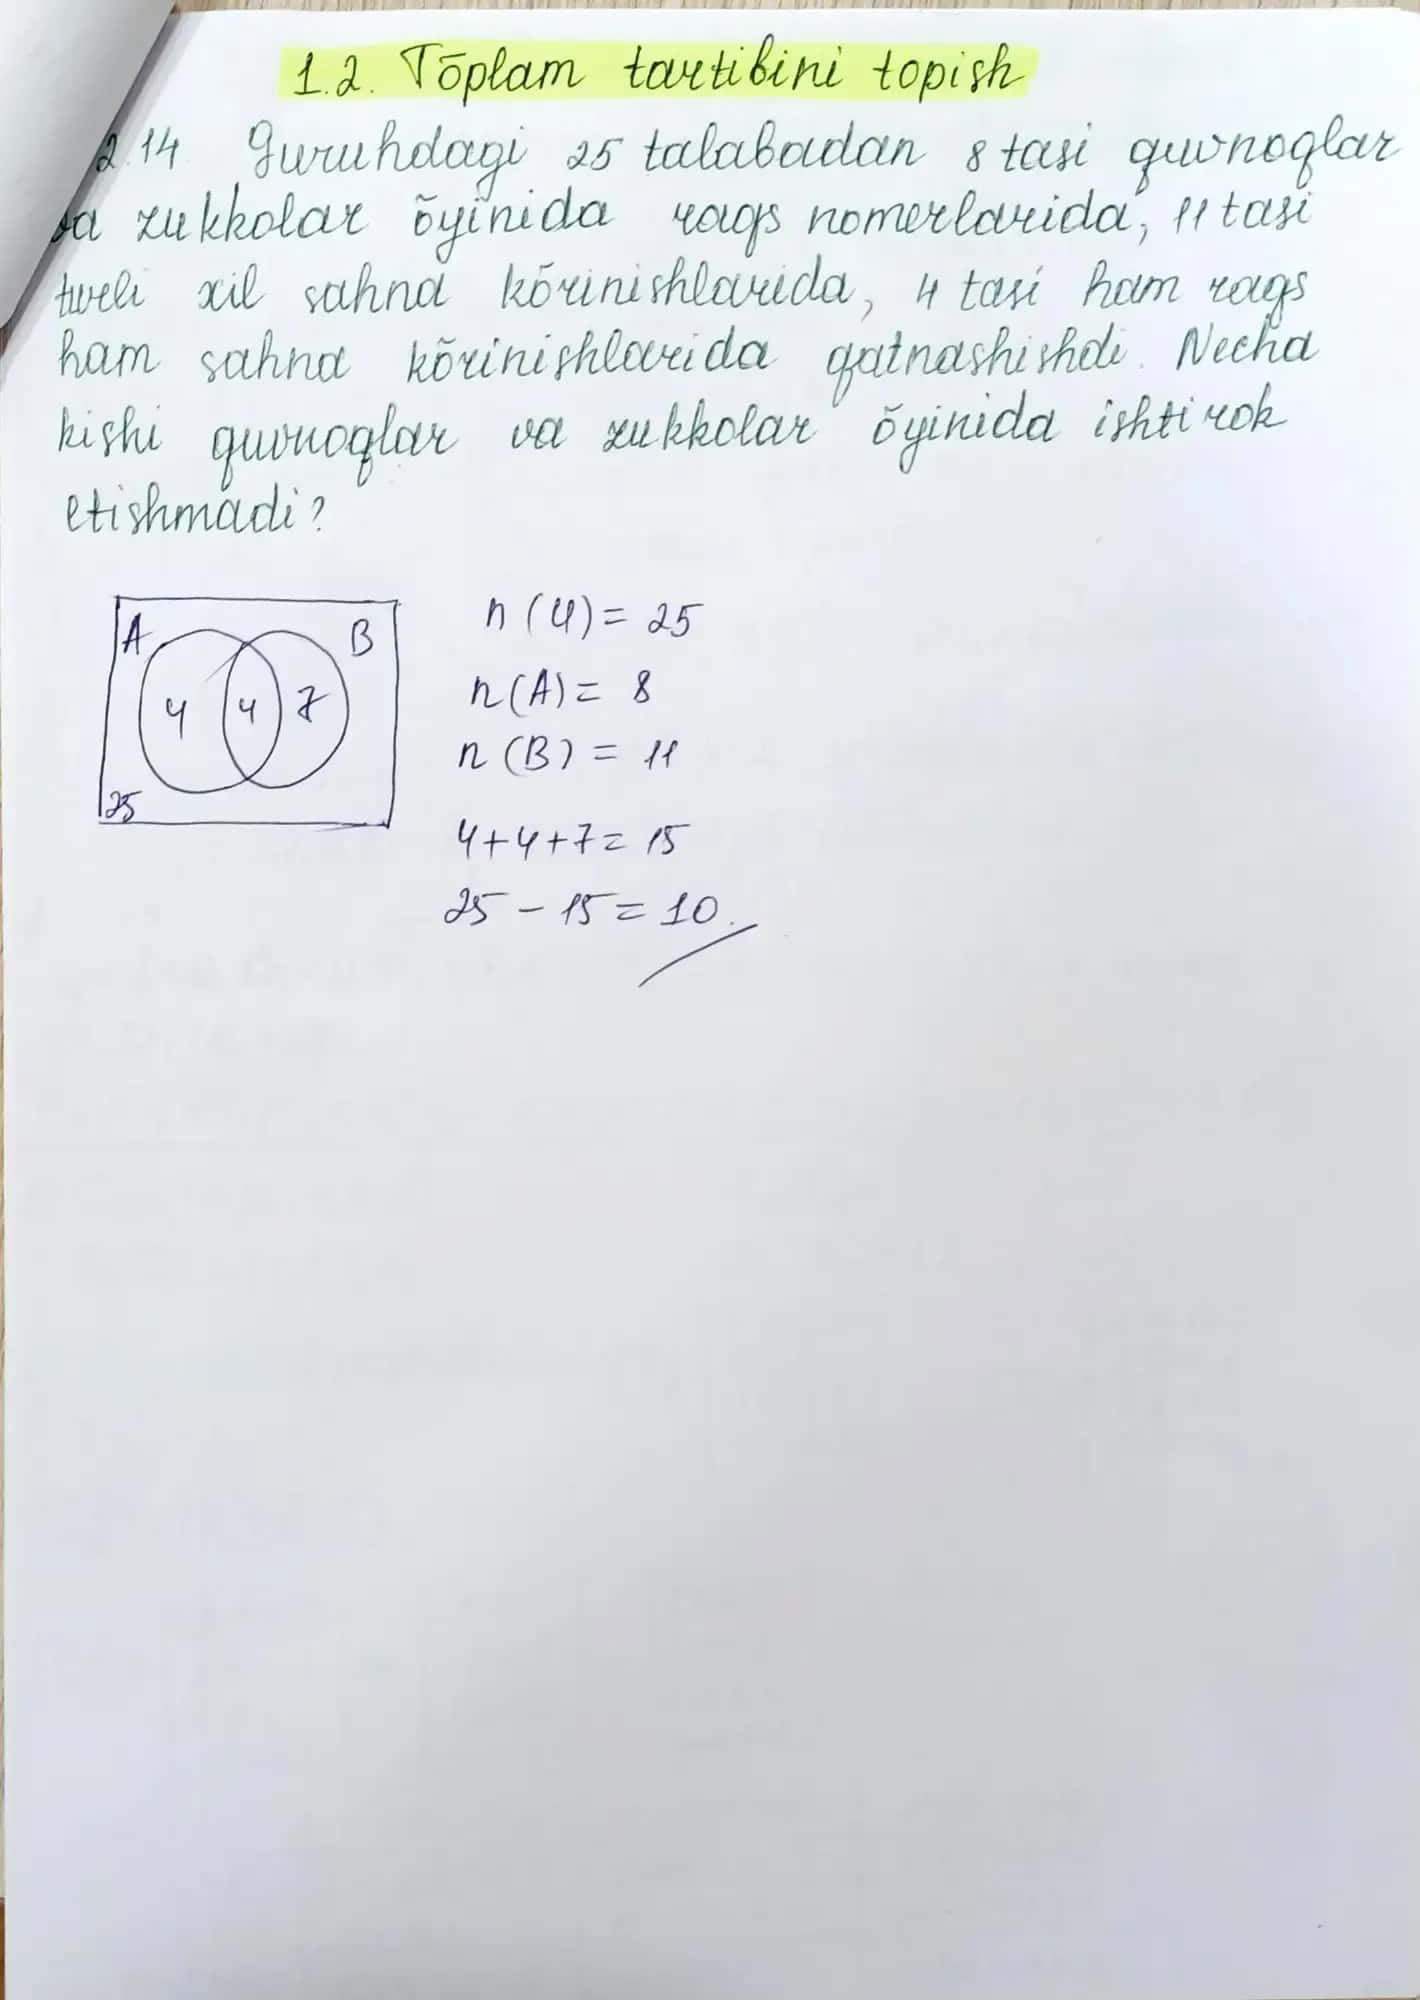 1.2. Tōplam tartibini topish
2.14 Guruhdagi 25 talabadan 8 tasi quvnoqlar
va zukkolar ōyinida raqs nomerlarida, 11 tasi
turli xil sahna kōrinishlarida, 4 tasi ham raqs
ham sahna kōrinishlarida qatnashishdi. Necha
kishi quvnoqlar va zukkolar ōyinida ishtirok
etishmadi?
A B
4 4 7
25
n(U) = 25
n(A) = 8
n(B) = 11
4+4+7=15
25-15=10.